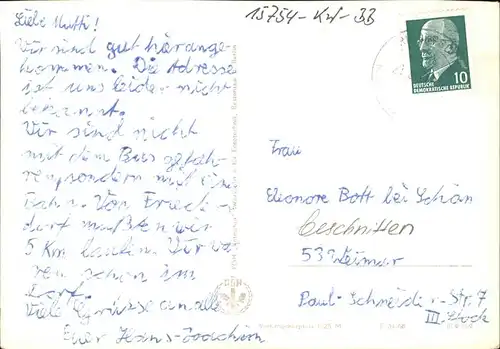 15754-Kw-BB
Liebe Mutti!
Wir sind gut herange-
kommen. Die Adresse
ist uns leider nicht
bekannt.
Wir sind nicht
mit dem Bus gefah-
ren sondern mit eine
Bahn. Von Fried-
dorf mußten wir
5 Km laufen. Wir wa-
ren schon im
Dorf.
Viele Grüsse an alle
Euer Hans-Joachim
10
DEUTSCHE
DEMOKRATISCHE REPUBLIK
Frau
Eleonore Bott bei Schön
Geschnitten
53 Weimar
Paul-Schneider-Str. 7
III. Stock